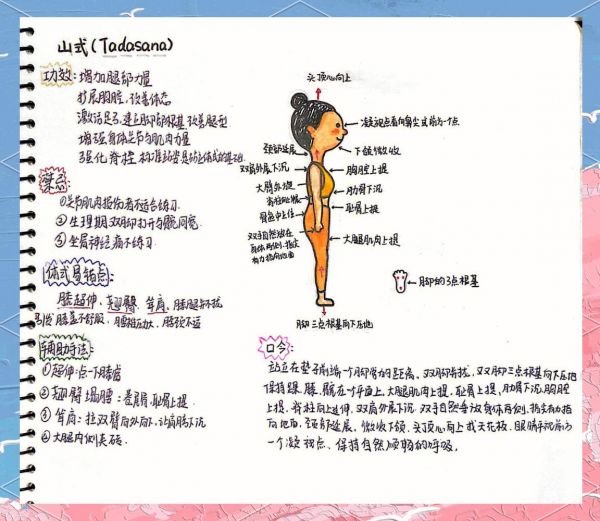 山式(Tadasana)
功效: 增加腿部力量
扩展胸腔,改善体态
激活足弓,建立脚部根基,改善腿型
增强身体关节与肌肉力量
强化脊柱,标准站姿是站立体式的基础
禁忌:
①关节肌肉损伤者不适合练习.
②生理期双脚打开与髋同宽.
③坐骨神经痛不练习.
体式易错点:
膝超伸、翘臀、耸肩、
引发膝盖不舒服,
辅助手法:
①超伸:点一下膝窝
②翘臀塌腰:卷尾骨,耻骨上提.
③耸肩:拉双臂向外向下,让肩膀下沉
④大腿内侧夹砖.
头顶心向上
凝视点看向鼻尖或前方一个点
颈部延展
下颌微收
双肩外展下沉
胸腔上提
大臂外旋
肋骨下沉
脊柱延展
耻骨上提
骨盆中立位
双手自然放在
身体两侧,指尖
有力指向地面
大腿肌肉上提
脚部的3点根基
脚部三点根基向下压地
口令:
站立在垫子前端一个脚掌的距离、双脚并拢,双脚三点根基向下压地
保持踝、膝、髋在一个平面上,大腿肌肉上提,耻骨上提,肋骨下沉,胸腔
上提,脊柱向上延伸,双肩外展下沉,双手自然垂放身体两侧,指尖有力指
向地面,颈部延展,微收下颌、头顶心向上找天花板,眼睛平视前方
一个凝视点、保持自然顺畅的呼吸.